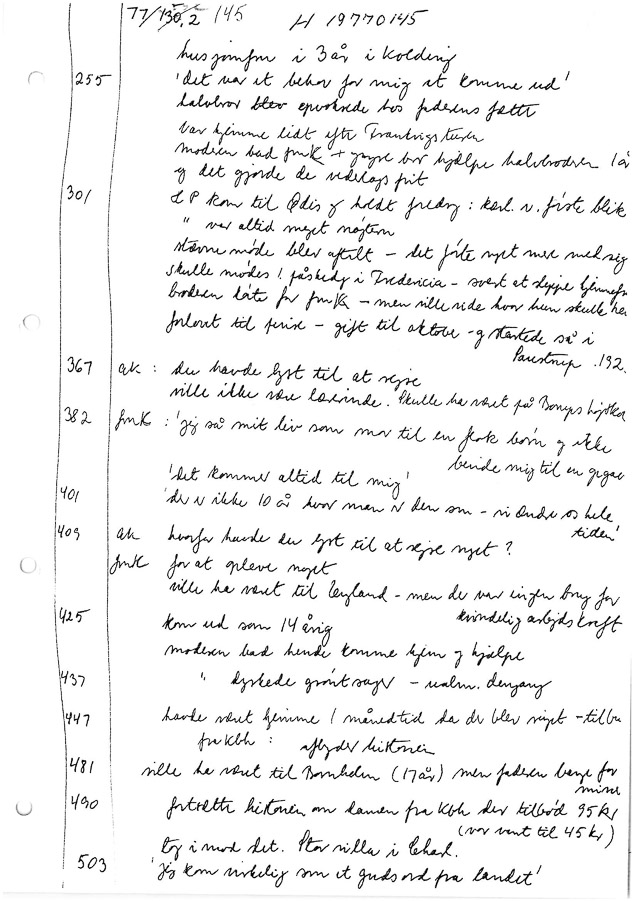 77/130,2 145 H 19770145
husjomfru i 3 år i Kolding
255 'det var et behov for mig at komme ud'
halvbror blev opvoksede hos faderens fætter
var hjemme lidt efter
moderen bad fmK + yngre bror hjælpe halvbroderen 1 år
og det gjorde de vederlags frit
301 LP kom til Ødis og holdt foredrag : kærl. v. første blik
" var altid meget nøjtern
stævne møde blev aftalt – det førte nyt mere med sig
skulle mødes 1. påskedag i Fredericia – svært at slippe hjemmefra
broderen kørte for fmK – men ville vide hvor hun skulle hen
forlovet til pinse – gift til oktober – og startede så i
Paustrup .192.
367 ak : du havde lyst til at rejse
ville ikke være lærerinde. Skulle ha været på Borups Højskole
382 fmK : 'jeg så mit liv som mor til en flok børn og ikke
binde mig til en
'det kommer altid til mig'
401 'der er ikke 10 år hvor man er den sm – vi ændre os hele
tiden'
409 ak hvorfor havde du lyst til at rejse noget ?
fmK for at opleve noget
ville ha været til England – men der var ingen brug for
kvindelig arbejdskraft
425 kom ud som 14 årig
moderen bad hende komme hjem og hjælpe
437 " dyrkede grøntsager – ualm. dengang
447 havde været hjemme 1 månedtid da der blev ringet – tilbu
fra Kbh : historien
481 ville ha været til Bornholm (17 år) men faderen bange for
miner
490 fortsætte historien om damen fra Kbh der tilbød 95 kr
(var vant til 45 kr)
tog i mod det. Stor villa i Charl.
503 'jeg kom virkelig som et guds ord fra landet'